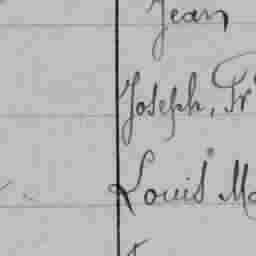 Jean
Joseph, Fr
Louis Ma